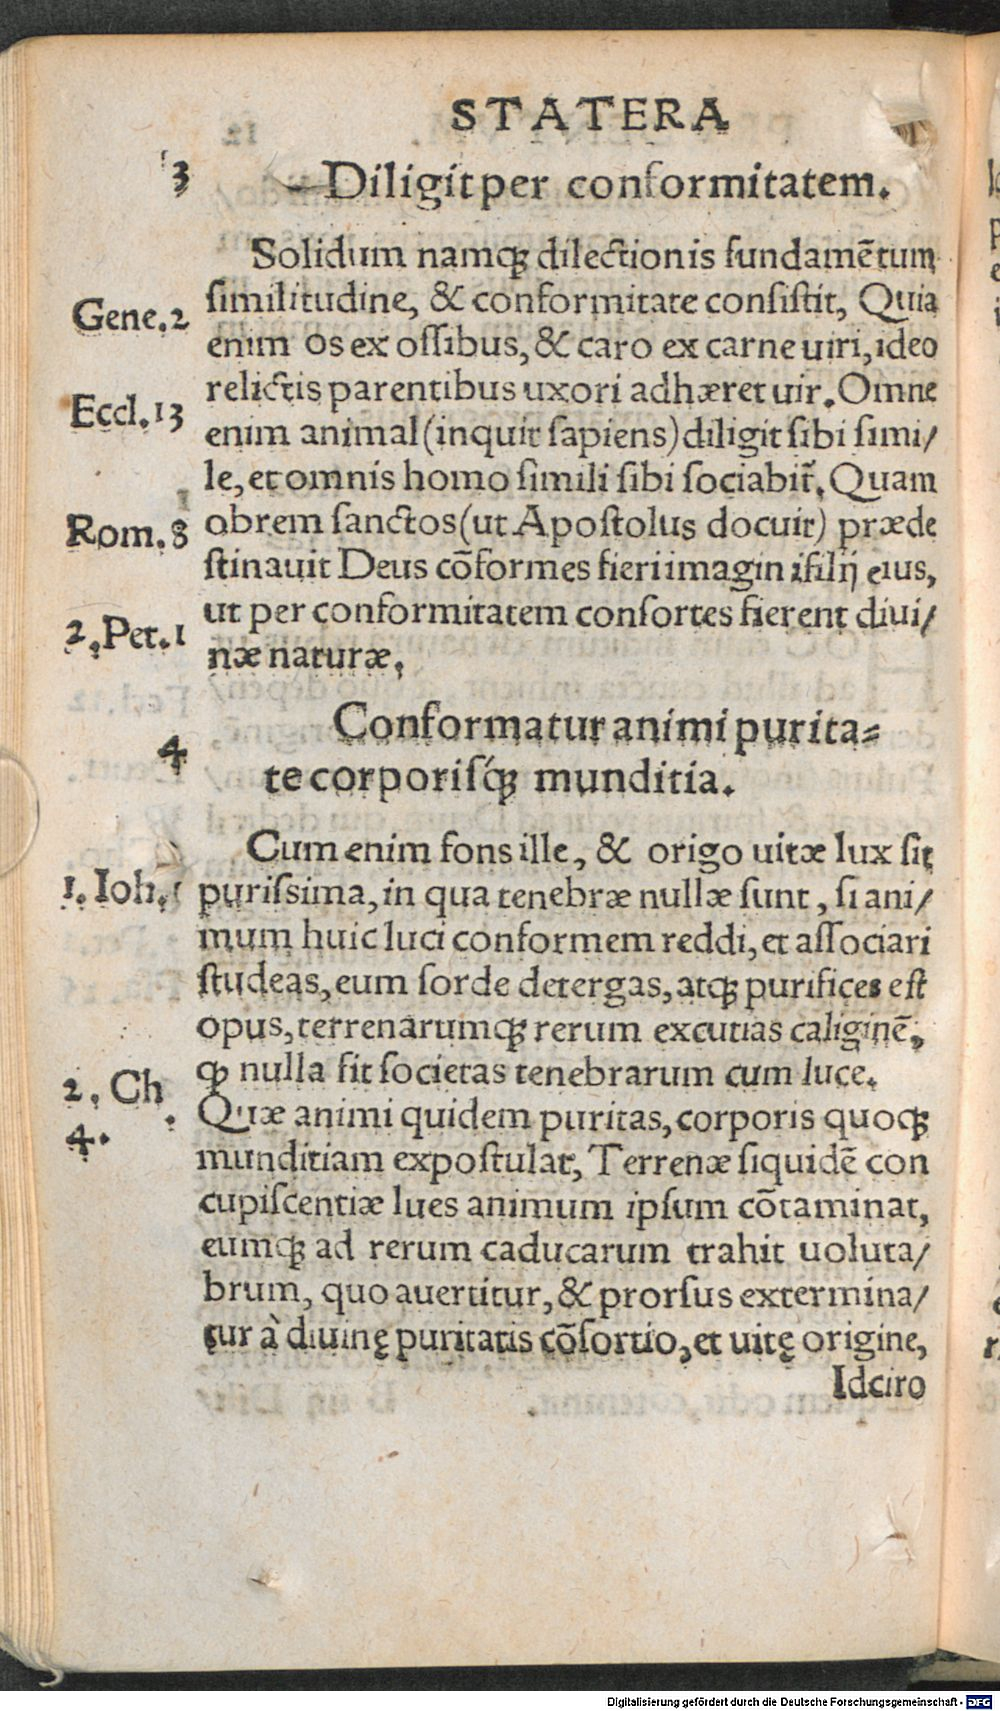 STATERA
3 Diligit per conformitatem.
Solidum namq; dilectionis fundamētum
Gene.2 similitudine, & conformitate consistit, Quia
enim os ex ossibus, & caro ex carne uiri, ideo
relictis parentibus uxori adhæret uir. Omne
Eccl.13 enim animal (inquit sapiens) diligit sibi simi/
le, et omnis homo simili sibi sociabit̃. Quam
Rom.8 obrem sanctos (ut Apostolus docuit) præde
stinauit Deus cõformes fieri imagin ifilij eius,
2.Pet.1 ut per conformitatem consortes fierent diui/
næ naturæ.
4 Conformatur animi purita=
te corporisq́; munditia.
Cum enim fons ille, & origo uitæ lux sit
1. Ioh.1 purissima, in qua tenebræ nullæ sunt, si ani/
mum huic luci conformem reddi, et associari
studeas, eum sorde detergas, atq; purifices est
opus, terrenarumq; rerum excutias caliginē,
2. Ch ꝙ nulla sit societas tenebrarum cum luce.
4. Quæ animi quidem puritas, corporis quoq;
munditiam expostulat, Terrenæ siquidē con
cupiscentiæ lues animum ipsum cõtaminat,
eumq; ad rerum caducarum trahit uoluta/
brum, quo auertitur, & prorsus extermina/
tur à diuinę puritatis cõsortio, et uitę origine,
Idciro
Digitalisierung gefördert durch die Deutsche Forschungsgemeinschaft - DFG